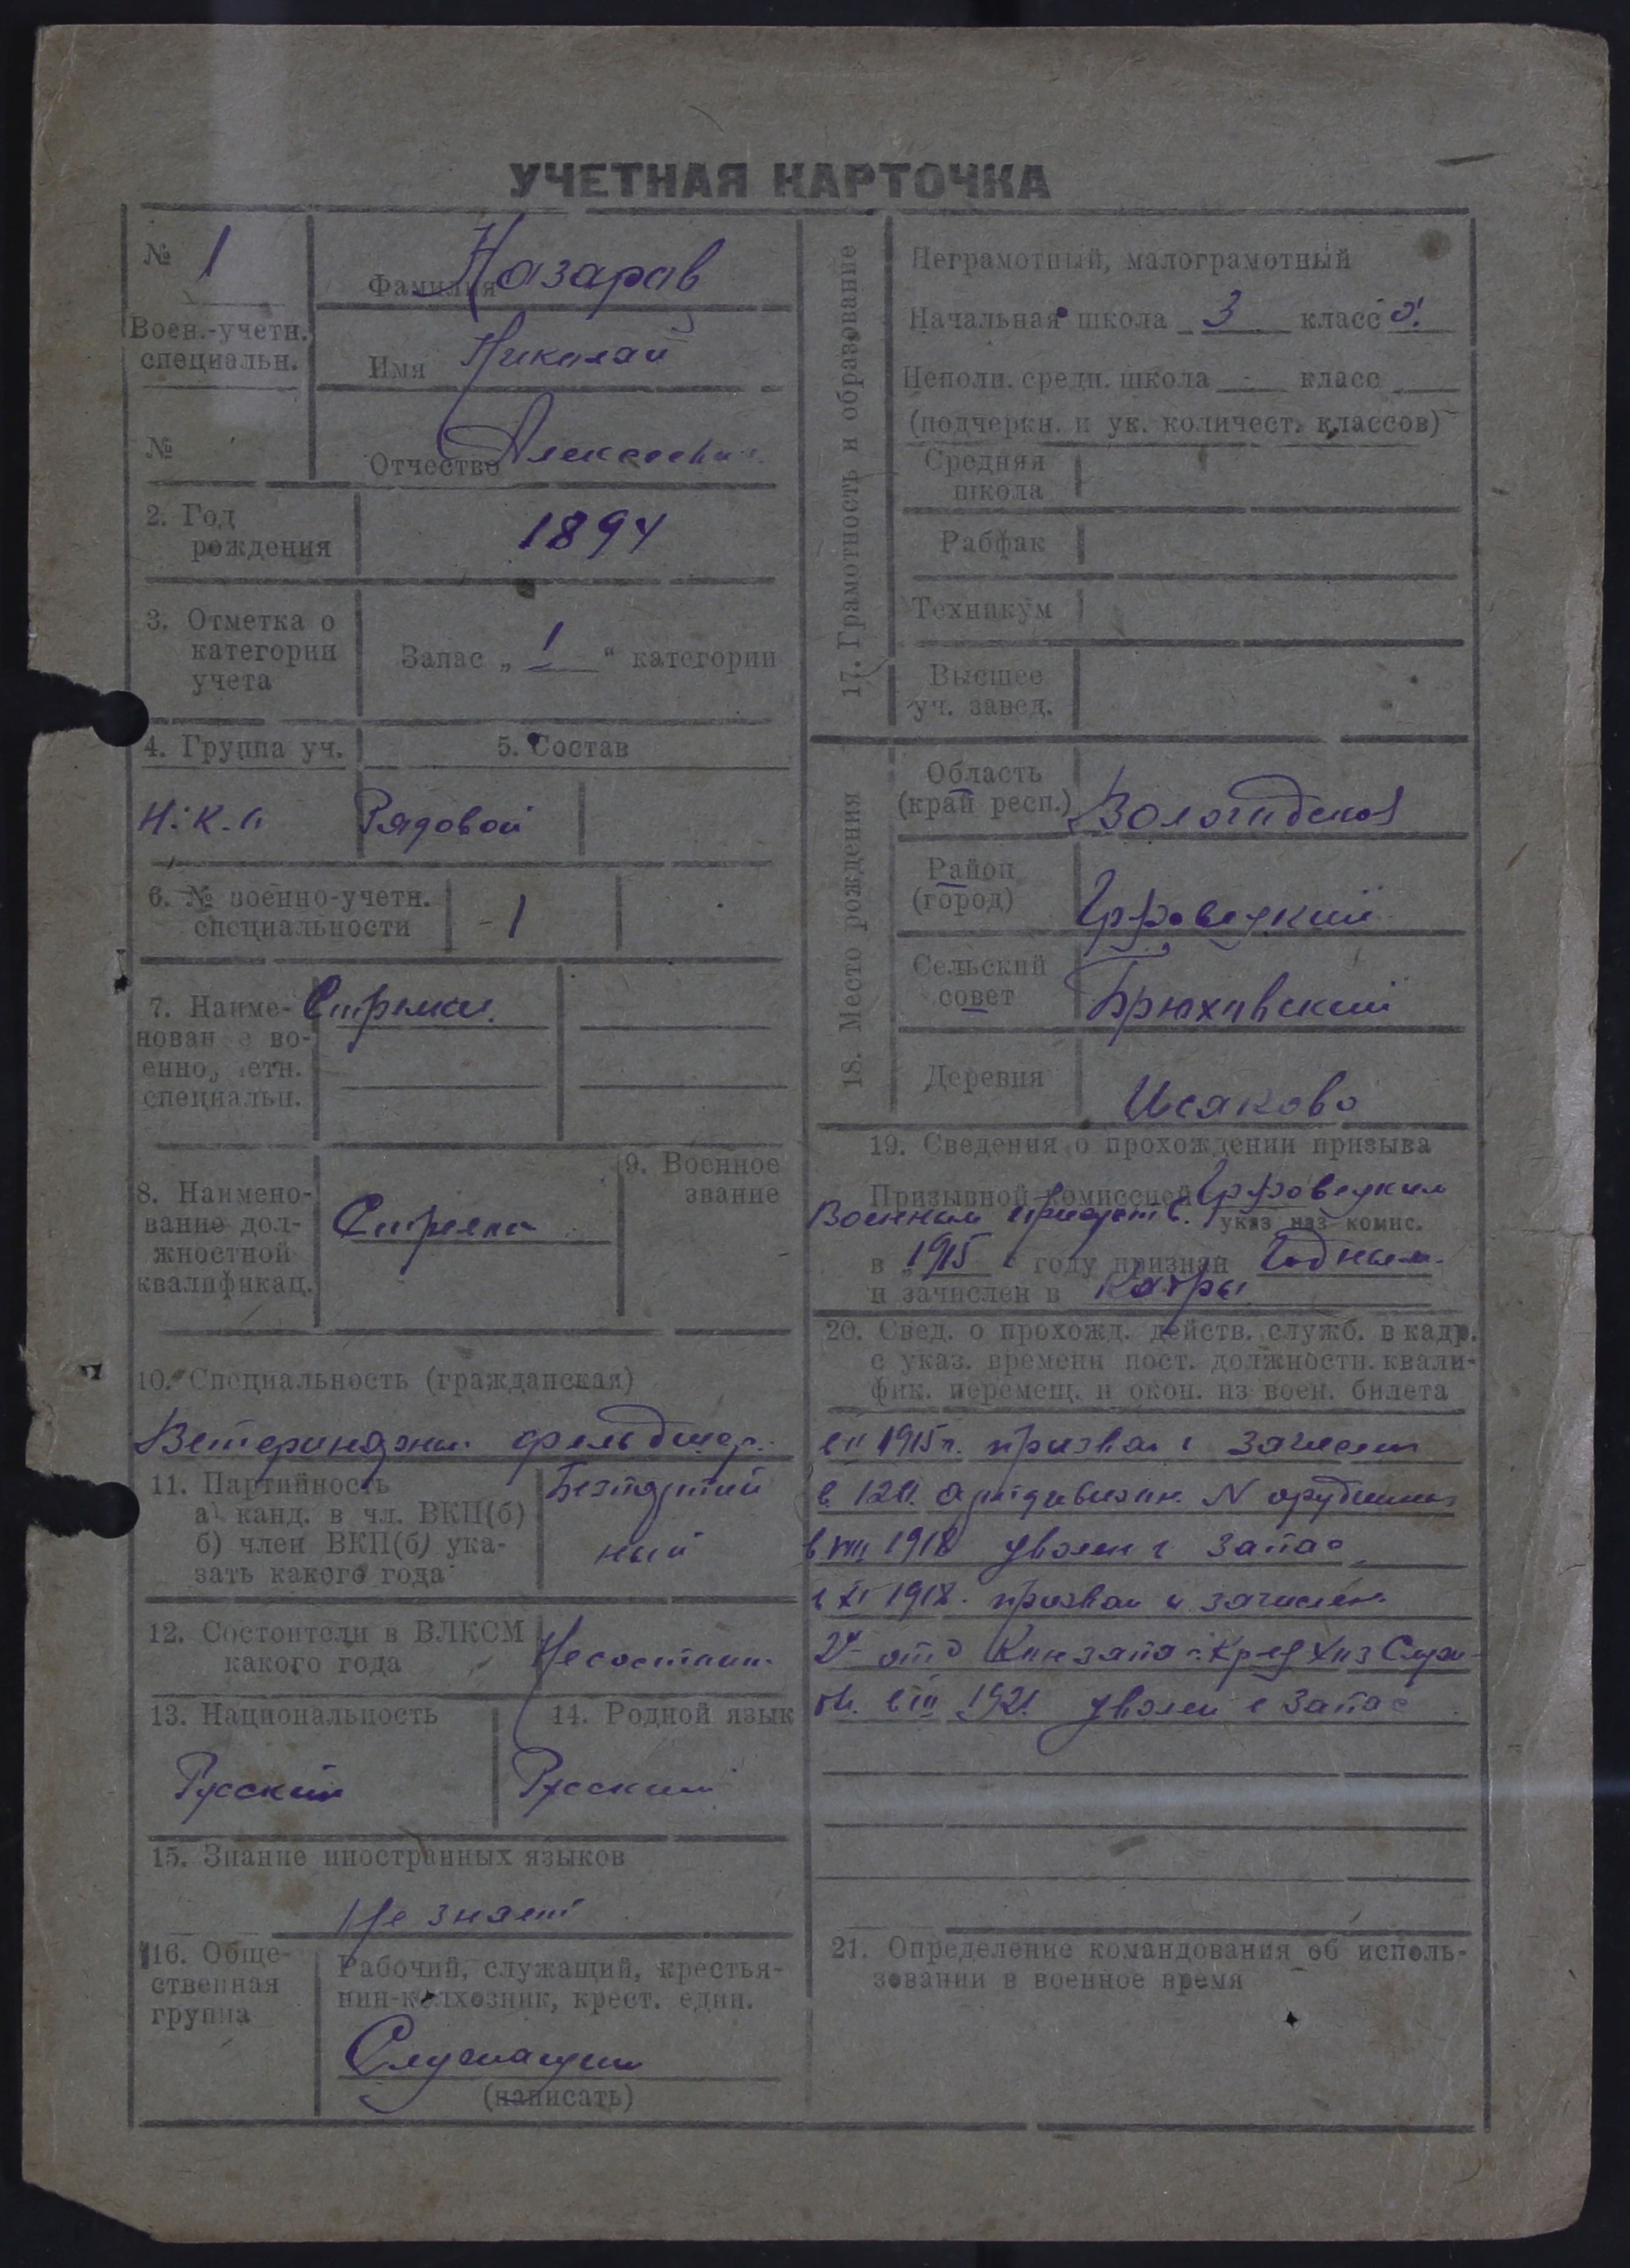 УЧЕТНАЯ КАРТОЧКА
№ 1
Фамилия Назаров
Воен.-учетн.
специальн.
Имя Николай
№
Отчество Алексееви
2. Год
рождения
1894
3. Отметка о
категории
учета
Запас „ 1 “ категории
4. Группа уч.
5. Состав
Рядовой
6. № военно-учетн.
специальности
1
7. Наиме-
нован е во-
енно, етн.
специальн.
Стрелки.
8. Наимено-
вание дол-
жностной
квалификац.
Стрелки
9. Военное
звание
10. Специальность (гражданская)
Ветеринарный фельдшер.
11. Партийность
а) канд. в чл. ВКП(б)
б) член ВКП(б) ука-
зать какого года
Безпартий
ный
12. Состоител и в ВЛКСМ
какого года
Несостоит.
13. Национальность
Русский
14. Родной язык
Русский
15. Знание иностранных языков
Не знает
16. Обще-
ственная
группа
Рабочий, служащий, крестья-
нин-колхозник, крест. един.
Служащий
(написать)
17. Грамотность и образование
Неграмотный, малограмотный
Начальная школа 3 класс а.
Неполн. средн. школа - класс
(подчеркн. и ук. количест. классов)
Средняя
школа
Рабфак
Техникум
Высшее
уч. завед.
18. Место рождения
Область
(край респ.)
Вологодской
Район
(город)
Грязовецкий
Сельский
совет
Брюховский
Деревня
Исаково
19. Сведения о прохождении призыва
Призывной комиссией Грязовецким
Военным присутств.
указ наз комис.
в „ 1915 году признан Годным.
и зачислен в
20. Свед. о прохожд. действ. служб. в кадр.
с указ. времени пост. должностн. квали-
фик. перемещ. и окон. из воен. билета
1915 г. призван зачислен
в 120. артдивизион. N орудийный
в VIII 1918 уволен в запас
в XI 1918. призван и зачислен.
2й отд
1921. уволен в запас
21. Определение командования об исполь-
зовании в военное время